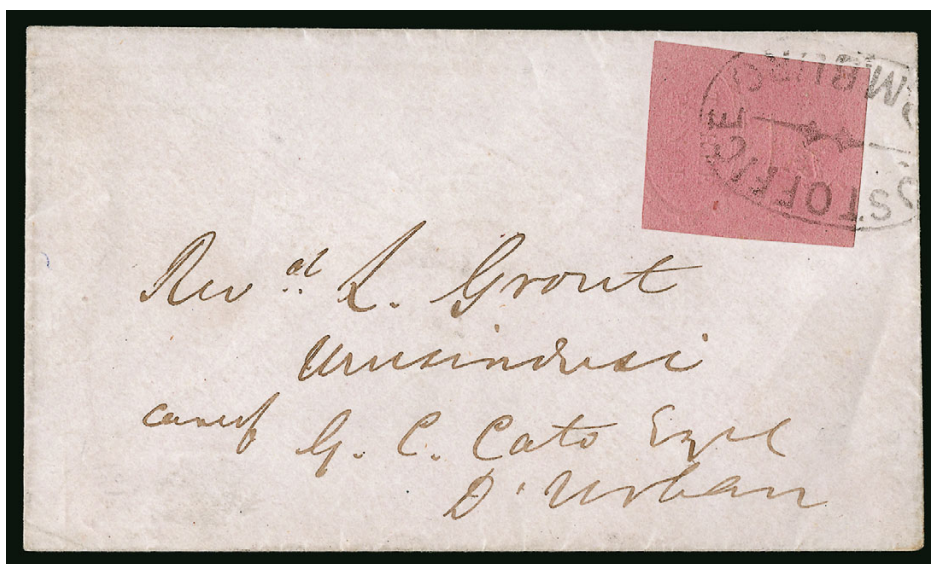 POST OFFICE
Rev.d L. Grout
Umsindusi
care of
G. C. Cato Esqre
D'Urban